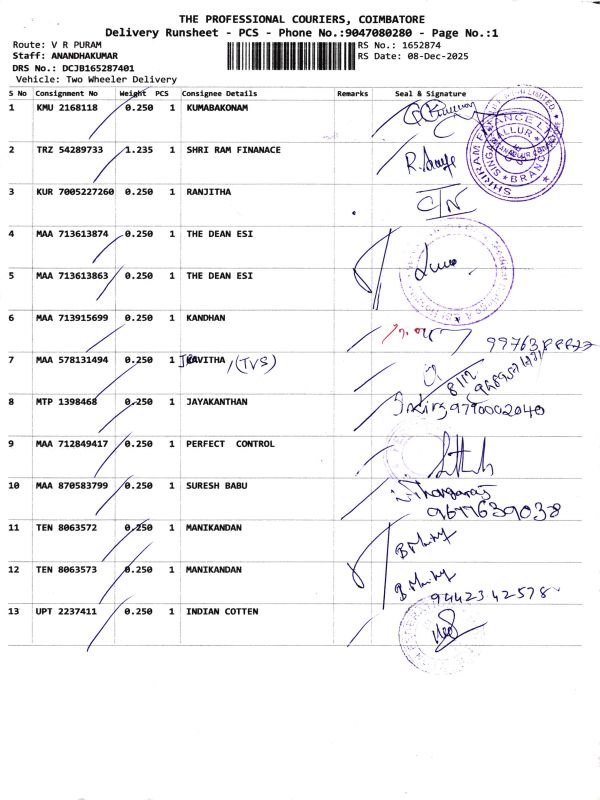 THE PROFESSIONAL COURIERS, COIMBATORE
Delivery Runsheet - PCS - Phone No.:9047080280 - Page No.:1
Route: V R PURAM RS No.: 1652874
Staff: ANANDHAKUMAR RS Date: 08-Dec-2025
DRS No.: DCJB165287401
Vehicle: Two Wheeler Delivery
S No Consignment No Weight PCS Consignee Details Remarks Seal & Signature
1 KMU 2168118 0.250 1 KUMABAKONAM
2 TRZ 54289733 1.235 1 SHRI RAM FINANACE
3 KUR 7005227260 0.250 1 RANJITHA
4 MAA 713613874 0.250 1 THE DEAN ESI
5 MAA 713613863 0.250 1 THE DEAN ESI
6 MAA 713915699 0.250 1 KANDHAN
7 MAA 578131494 0.250 1 KAVITHA /(TVS)
8 MTP 1398468 0.250 1 JAYAKANTHAN 9790002040
9 MAA 712849417 0.250 1 PERFECT CONTROL
10 MAA 870583799 0.250 1 SURESH BABU Thangaraj
9677639038
11 TEN 8063572 0.250 1 MANIKANDAN
12 TEN 8063573 0.250 1 MANIKANDAN
9442342578
13 UPT 2237411 0.250 1 INDIAN COTTEN